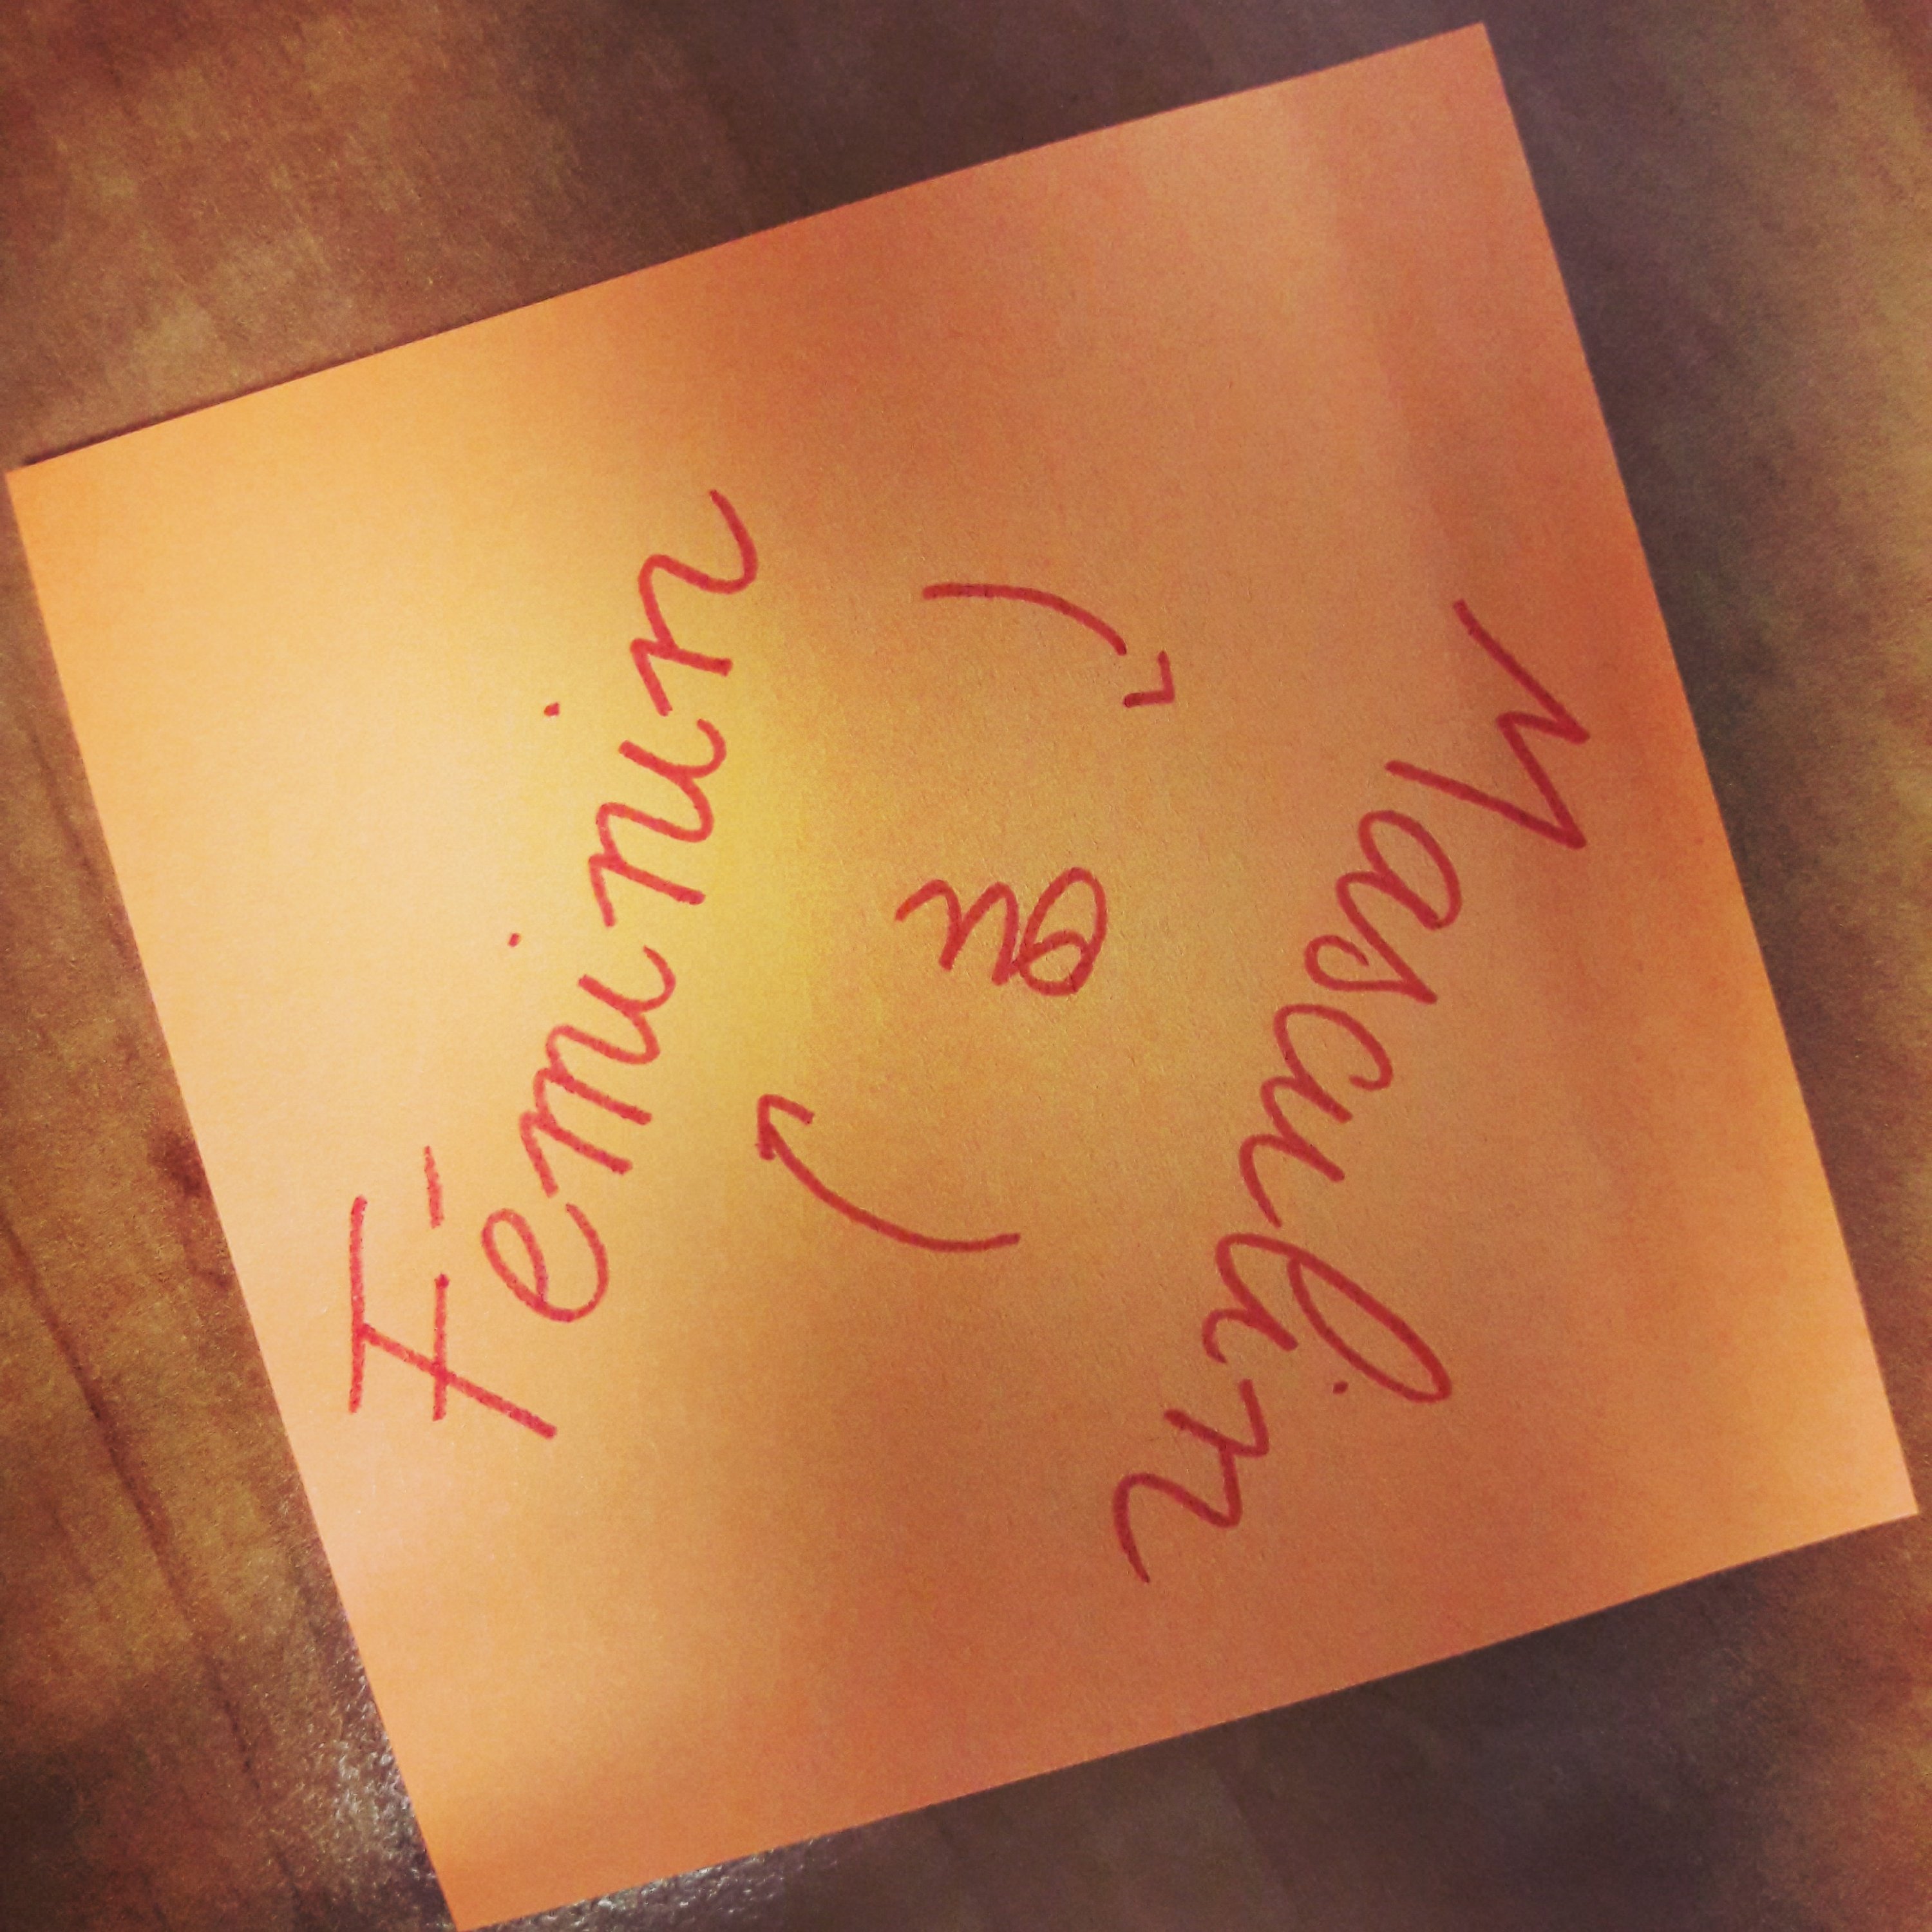 Féminin
ou
Masculin